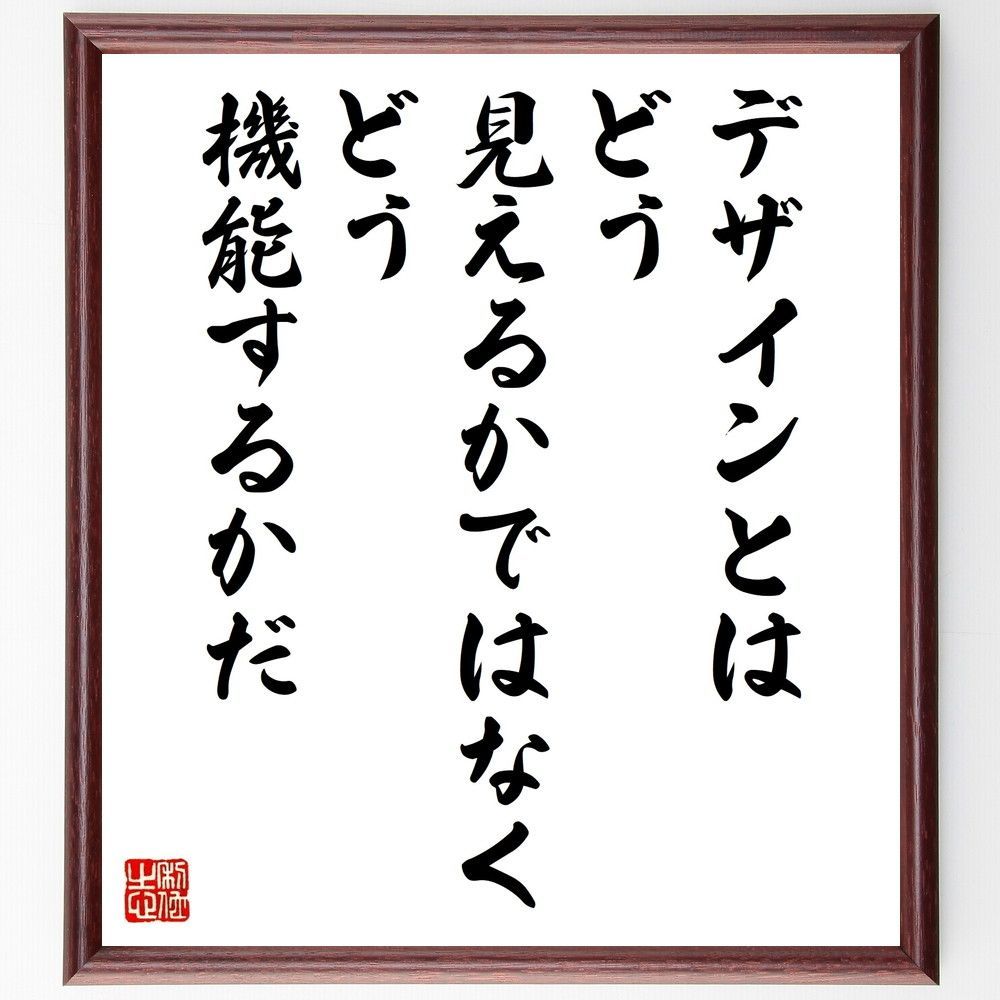 デザインとは
どう
見えるかではなく
どう
機能するかだ